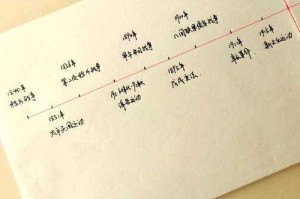 1840年
鸦片战争
1851年
太平天国运动
1856年
第二次鸦片战争
洋务运动
1894年
甲午中日战争
戊戌变法
1900年
八国联军侵华战争
1911年
辛亥革命
1915年
新文化运动